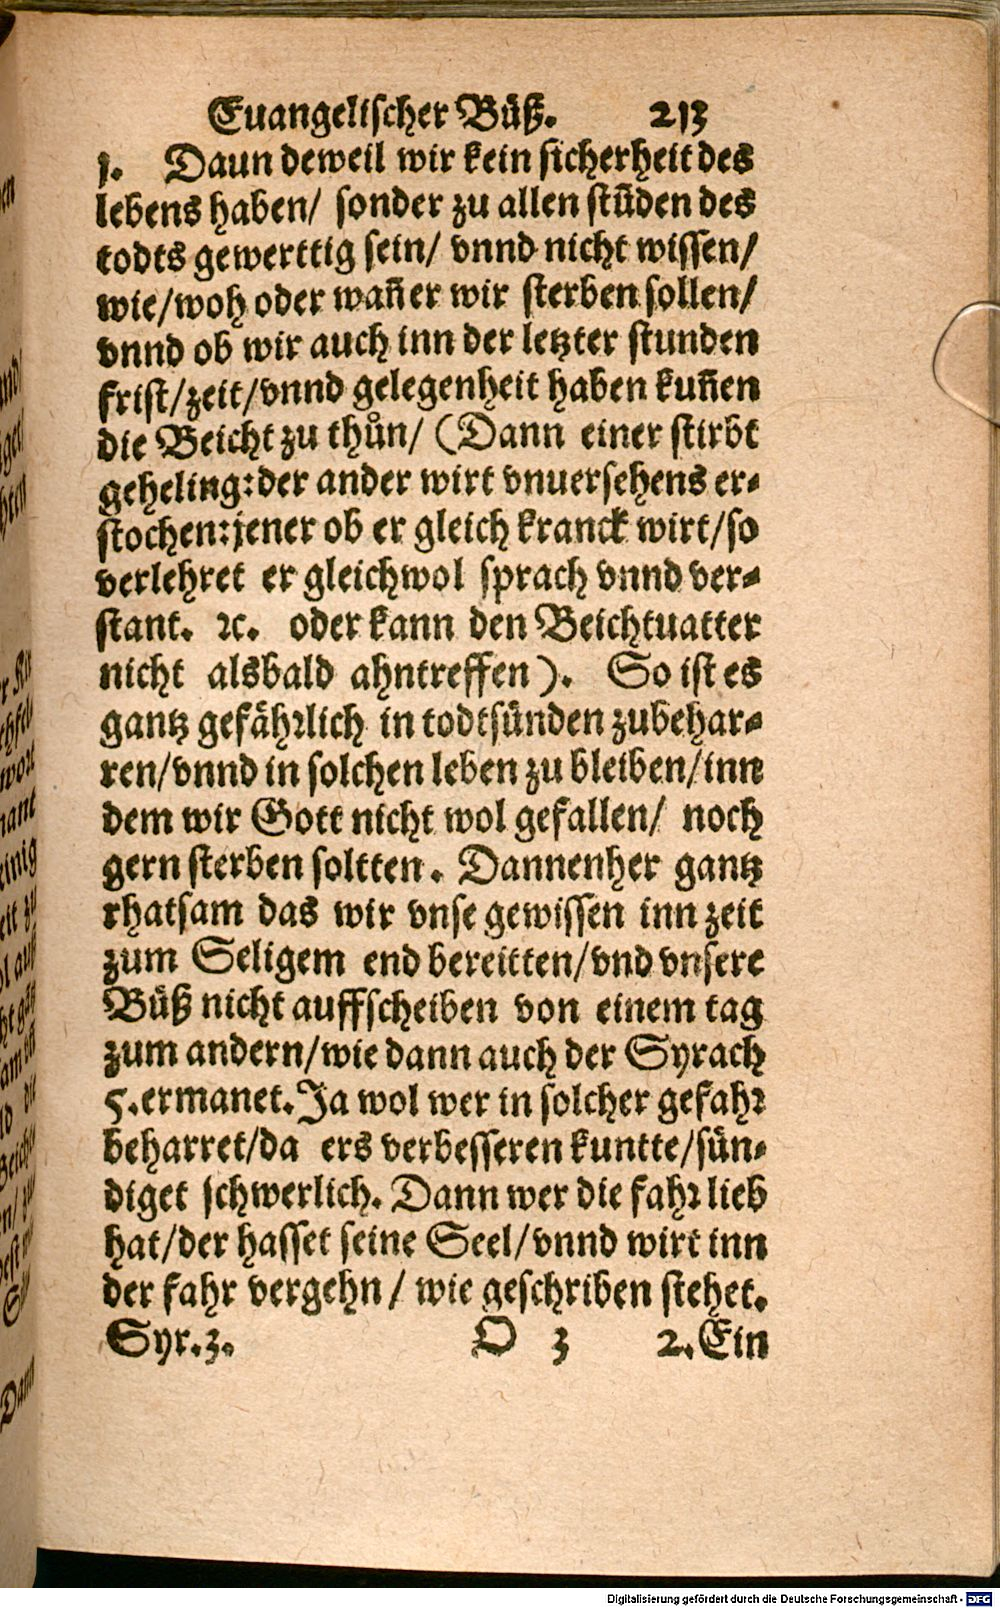 Euangelischer Büß. 213
1. Daun deweil wir kein sicherheit des
lebens haben/ sonder zu allen stūden des
todts gewerttig sein/ vnnd nicht wissen/
wie/woh oder wañer wir sterben sollen/
vnnd ob wir auch inn der letzter stunden
frist/zeit/vnnd gelegenheit haben kuñen
die Beicht zu thůn/ (Dann einer stirbt
geheling:der ander wirt vnuersehens er-
stochen:jener ob er gleich kranck wirt/so
verlehret er gleichwol sprach vnnd ver-
stant. ꝛc. oder kann den Beichtuatter
nicht alsbald ahntreffen). So ist es
gantz gefährlich in todtsünden zubehar-
ren/vnnd in solchen leben zu bleiben/inn
dem wir Gott nicht wol gefallen/ noch
gern sterben soltten. Dannenher gantz
rhatsam das wir vnse gewissen inn zeit
zum Seligem end bereitten/vnd vnsere
Büß nicht auffscheiben von einem tag
zum andern/wie dann auch der Syrach
5.ermanet.Ja wol wer in solcher gefahr
beharret/da ers verbesseren kuntte/sün-
diget schwerlich. Dann wer die fahr lieb
hat/der hasset seine Seel/vnnd wirt inn
der fahr vergehn/ wie geschriben stehet.
Syr.3. O 3 2. Ein
Digitalisierung gefördert durch die Deutsche Forschungsgemeinschaft - DFG